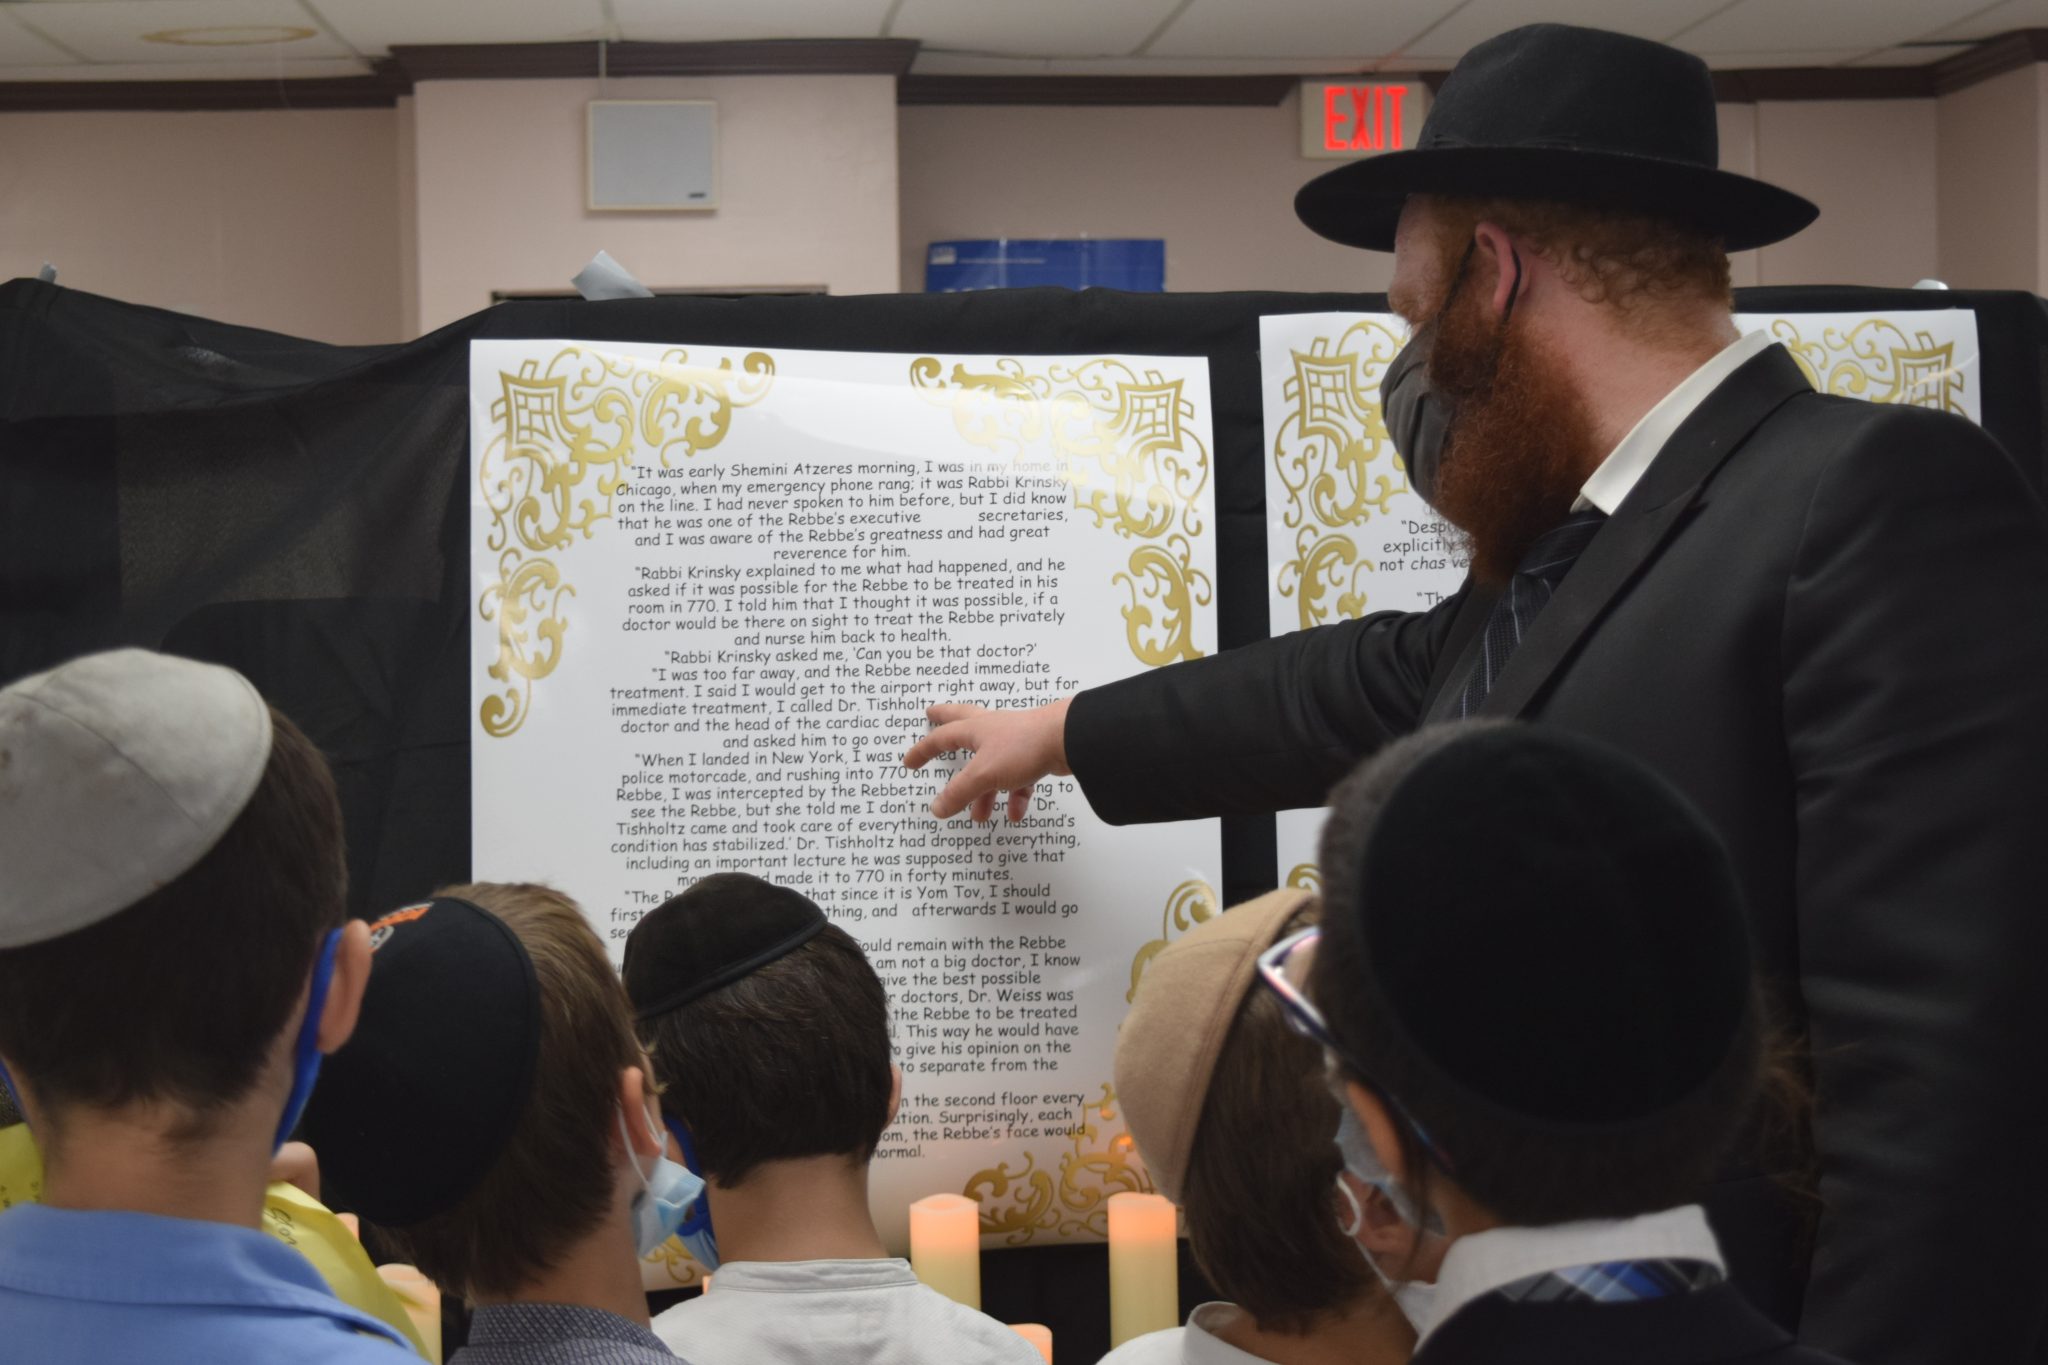 EXIT
"It was early Shemini Atzeres morning, I was in my home in
Chicago, when my emergency phone rang; it was Rabbi Krinsky
on the line. I had never spoken to him before, but I did know
that he was one of the Rebbe's executive secretaries,
and I was aware of the Rebbe's greatness and had great
reverence for him.
"Rabbi Krinsky explained to me what had happened, and he
asked if it was possible for the Rebbe to be treated in his
room in 770. I told him that I thought it was possible, if a
doctor would be there on sight to treat the Rebbe privately
and nurse him back to health.
"Rabbi Krinsky asked me, 'Can you be that doctor?'
"I was too far away, and the Rebbe needed immediate
treatment. I said I would get to the airport right away, but for
immediate treatment, I called Dr. Tishholtz, a very
doctor and the head of the cardiac
and asked him to go over
"When I landed in New York, I was
police motorcade, and rushing into 770 on my
Rebbe, I was intercepted by the Rebbetzin. to
see the Rebbe, but she told me I don't 'Dr.
Tishholtz came and took care of everything, and my husband's
condition has stabilized.' Dr. Tishholtz had dropped everything,
including an important lecture he was supposed to give that
made it to 770 in forty minutes.
"The that since it is Yom Tov, I should
first and afterwards I would go
remain with the Rebbe
am not a big doctor, I know
give the best possible
doctors, Dr. Weiss was
the Rebbe to be treated
This way he would have
give his opinion on the
to separate from the
the second floor every
Surprisingly, each
the Rebbe's face would
normal.
explicitly
not chas